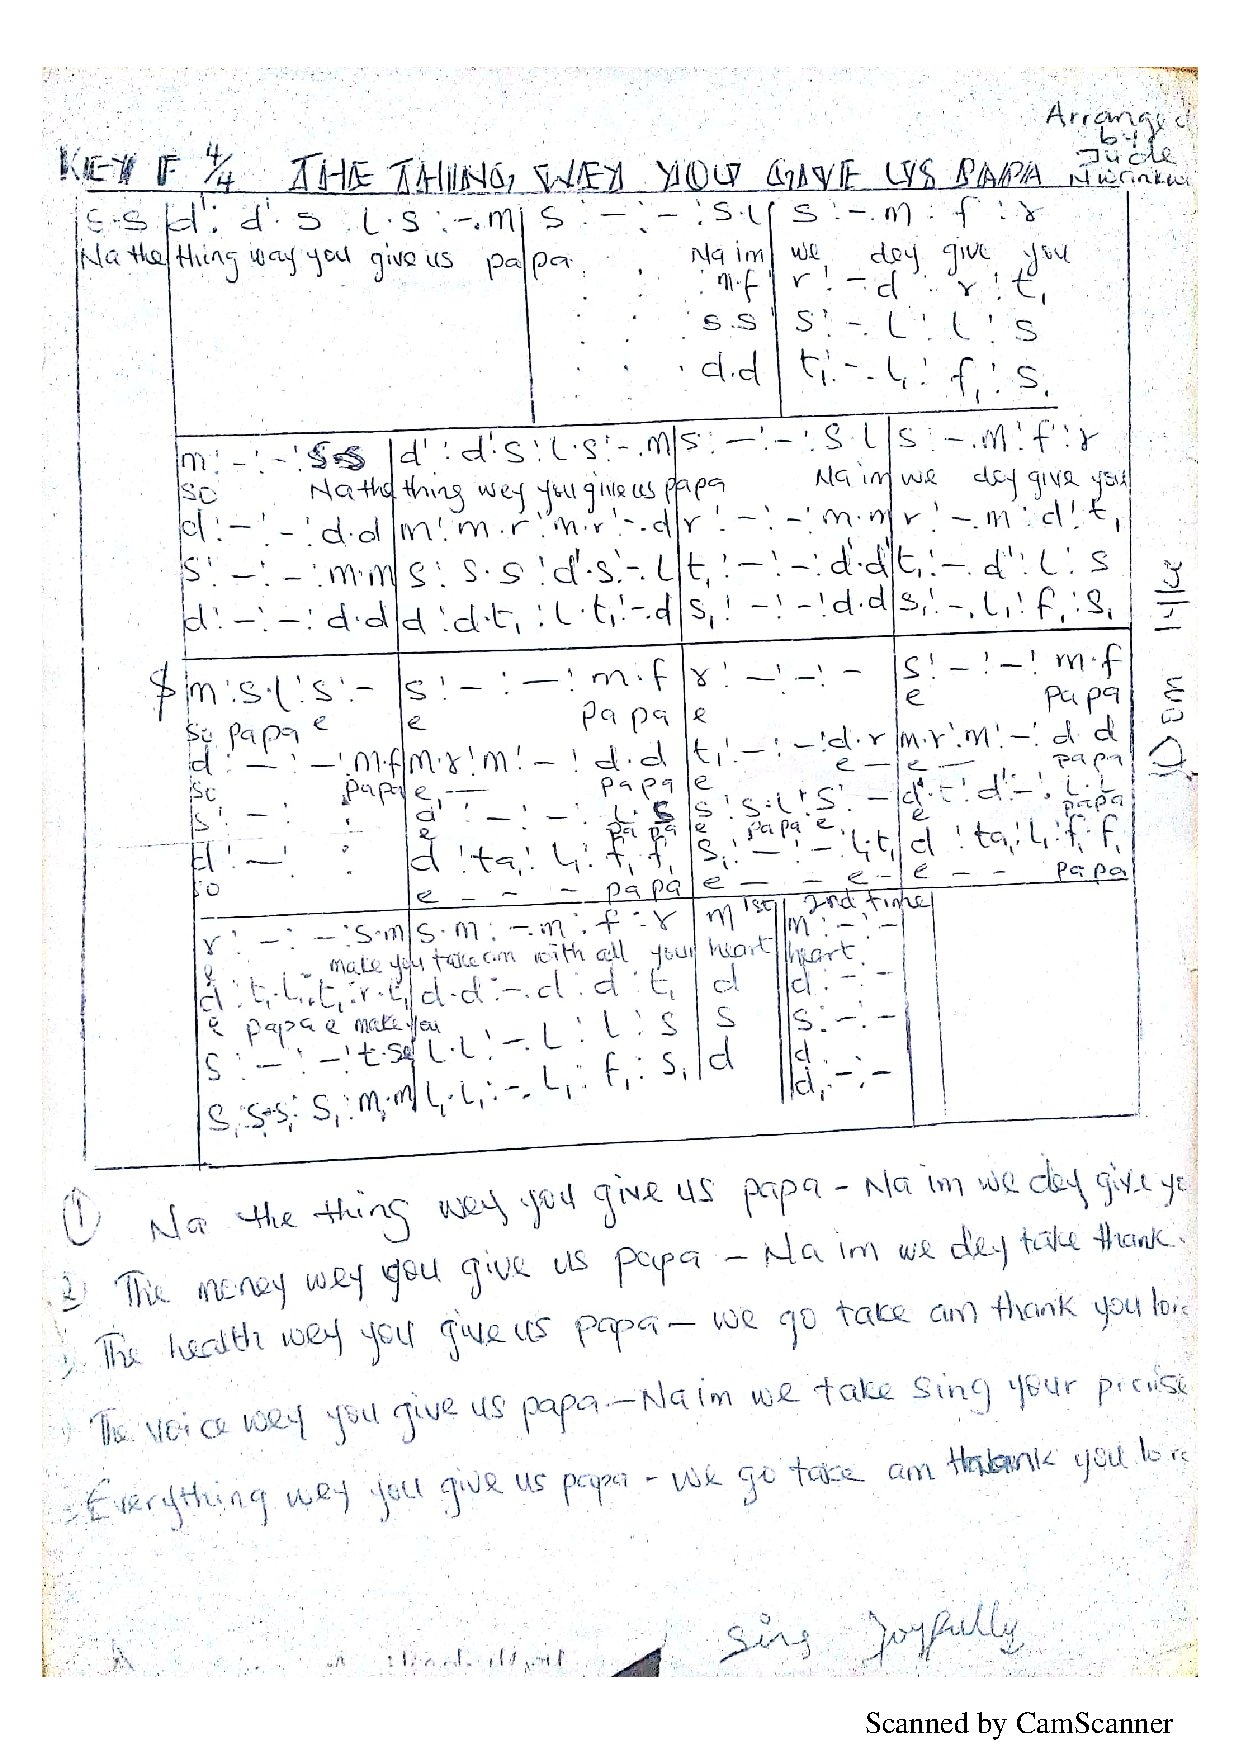 Arranged
by
Jude
KEY F 4/4 THE THING WEY YOU GIVE US PAPA
s.s | d': d'.s : l.s : -.m | s : - : - : s.l | s : -.m : f : r
Na the thing way you give us papa Na im we dey give you
: m.f | r : -.d : r : t,
s.s | s : -.l : l : s
d.d | t, : -.l, : f, : s,
m : - : - : s.s | d' : d'.s : l.s : -.m | s : - : - : s.l | s : -.m : f : r
so Na the thing wey you give us papa Na im we dey give you
d : - : - : d.d | m : m.r : m.r : -.d | r : - : - : m.m | r : -.m : d : t,
s : - : - : m.m | s : s.s : d'.s : -.l | t, : - : - : d'.d' | t, : -.d' : l : s
d : - : - : d.d | d : d.t, : l.t, : -.d | s, : - : - : d.d | s, : -.l, : f, : s,
$ m : s.l : s : - | s : - : - : m.f | r : - : - : - | s : - : - : m.f
so papa e e papa e e papa
d : - : - : m.f | m.r : m : - : d.d | t, : - : - : d.r | m.r : m : - : d.d
so papa e, — papa e e — e — papa
s : - : : | d' : - : - : l.s | s : s.l : s : - | d'.t : d' : - : l.l
e papa e papa e e papa
d : - : : | d : ta, : l, : f,.f, | s, : - : - : l,.t, | d : ta, : l, : f,.f,
so e - - - papa e — — e - e - - papa
r : - : - : s.m | s.m : -.m : f : r | m 1st | 2nd time m : - : -
e make you take am with all your heart heart
d : t,.l, : t, : r.t, | d.d : -.d : d : t, | d | d : - : -
e papa e make you
s : - : - : t.se | l.l : -.l : l : s | s | s : - : -
s, : s,.s, : s, : m,.m, | l,.l, : -.l, : f, : s, | d | d, : - : -
1 Na the thing wey you give us papa - Na im we dey give yo
2 The money wey you give us papa - Na im we dey take thank
3. The health wey you give us papa - we go take am thank you lord
The voice wey you give us papa - Na im we take sing your praise
Everything wey you give us papa - we go take am thank you lord
Sing Joyfully
Scanned by CamScanner